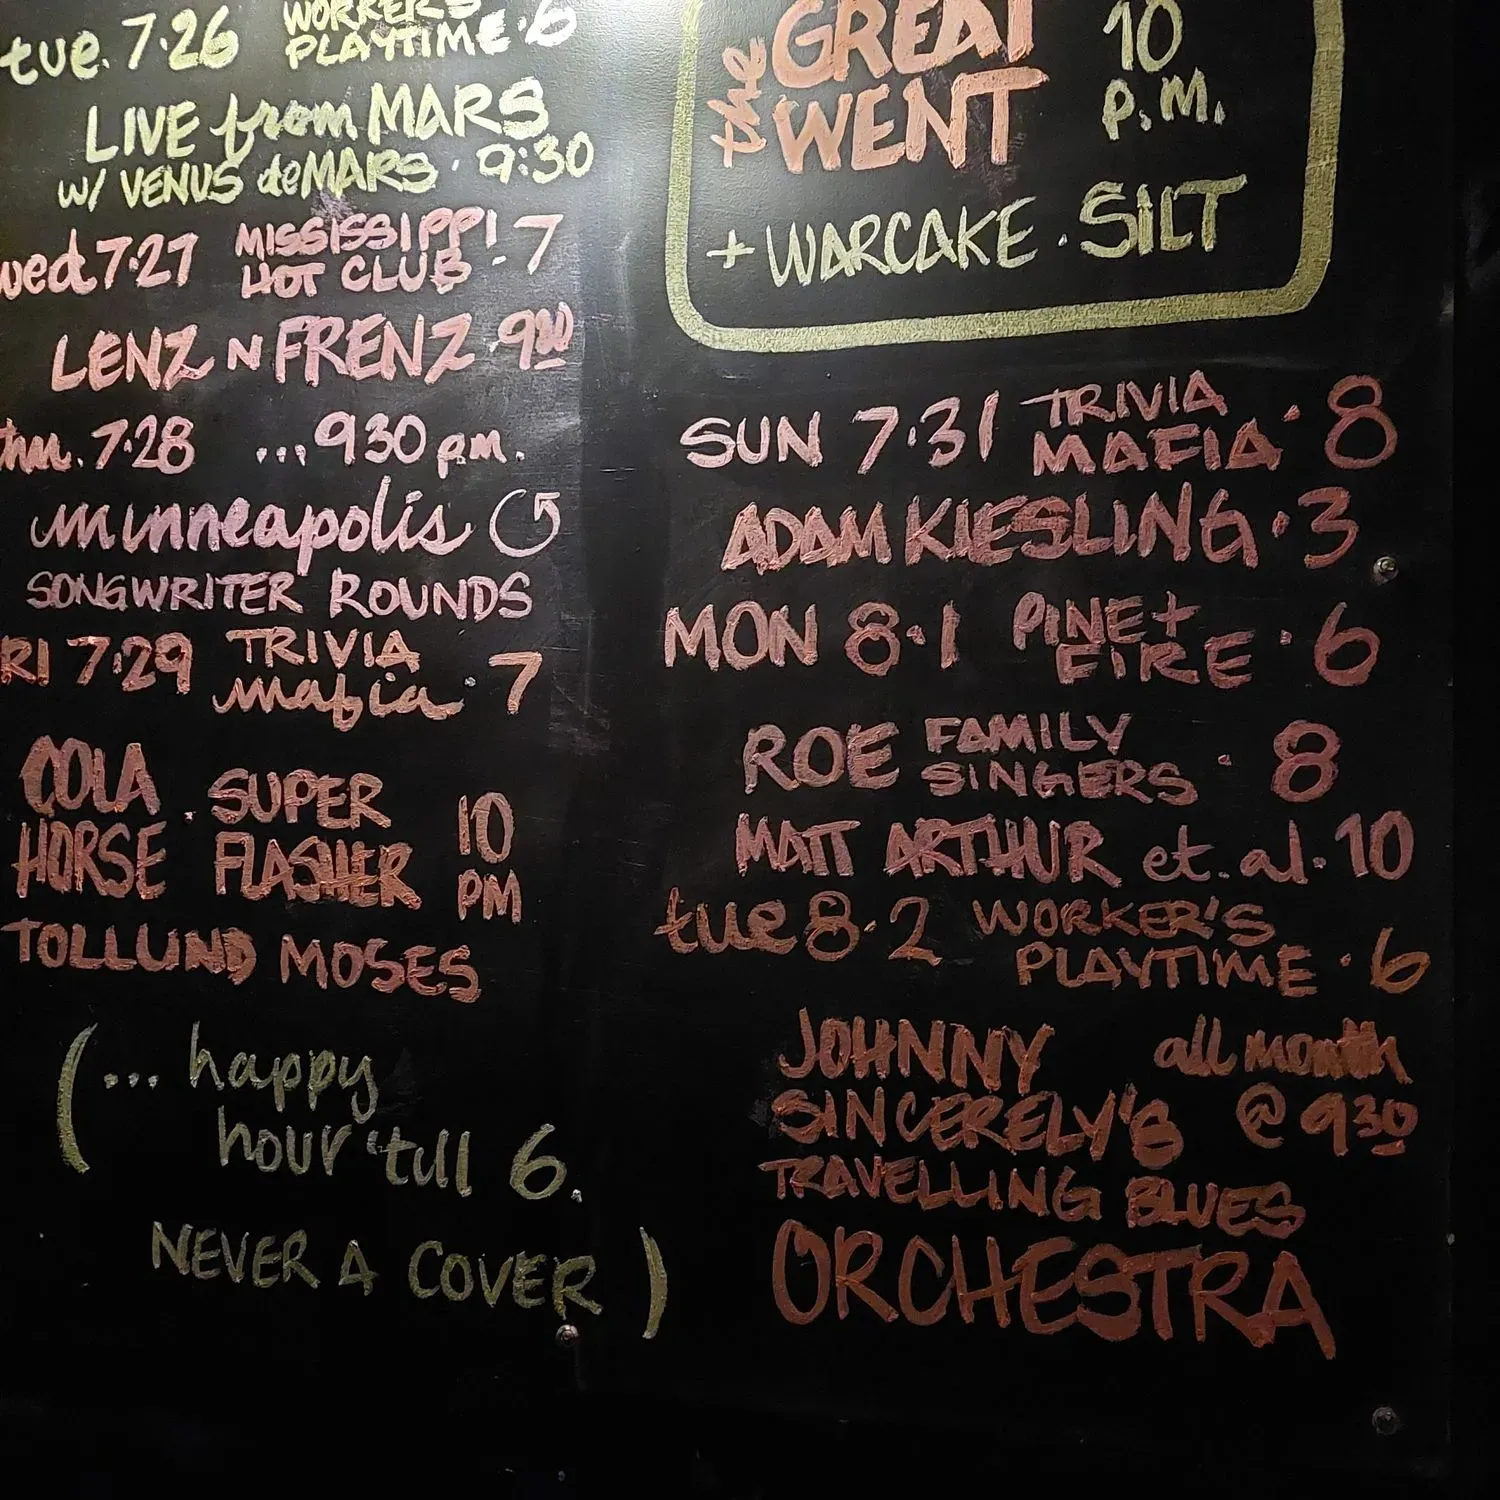 tue. 7.26 WORKER'S
PLAYTIME · 6
LIVE from MARS
w/ VENUS de MARS · 9:30
wed 7.27 MISSISSIPPI
HOT CLUB · 7
LENZ N FRENZ 930
thu. 7.28 ...930 pm.
minneapolis
SONGWRITER ROUNDS
RI 7.29 TRIVIA
mafia · 7
COLA HORSE . SUPER FLASHER 10 PM
TOLLUND MOSES
(... happy
hour 'till 6.
NEVER A COVER)
the GREAT WENT 10 P.M.
+ WARCAKE . SILT
SUN 7.31 TRIVIA
MAFIA · 8
ADAM KIESLING · 3
MON 8.1 PINE +
FIRE · 6
ROE FAMILY
SINGERS · 8
MATT ARTHUR et. al. 10
tue 8.2 WORKER'S
PLAYTIME · 6
JOHNNY all month
SINCERELY'S @ 930
TRAVELLING BLUES
ORCHESTRA